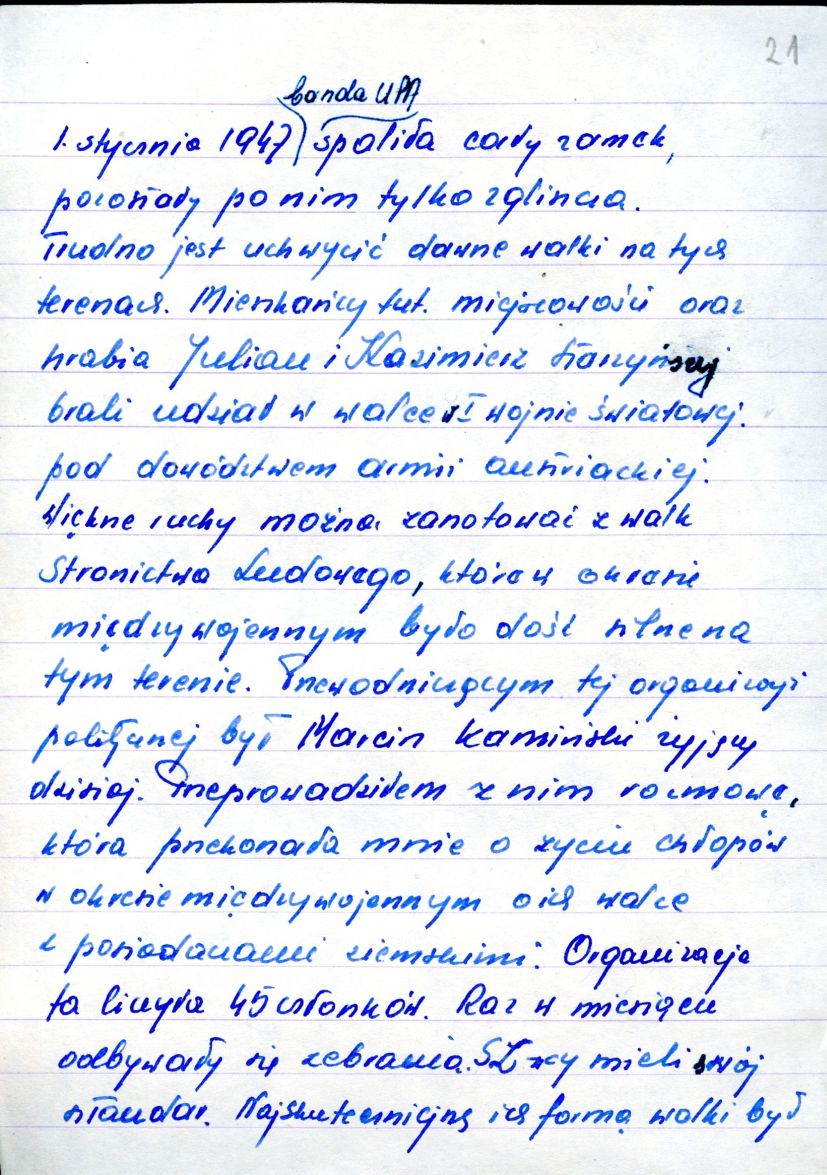 21
banda UPA
1. stycznia 1947 spaliła cały zamek,
pozostały po nim tylko zgliszcza.
Trudno jest uchwycić dawne walki na tych
terenach. Mieszkańcy tut. miejscowości oraz
hrabia Julian i Kazimierz
brali udział w walce w I wojnie światowej.
pod dowództwem armii austriackiej.
Większe ruchy można zanotować z walk
Stronictwa Ludowego, które w okresie
międzywojennym było dość silne na
tym terenie. Przewodniczącym tej organizacji
politycznej był Marcin Kamiński żyjący
dzisiaj. Przeprowadziłem z nim rozmowę,
która przekonała mnie o życiu chłopów
w okresie międzywojennym o ich walce
z posiadaczami ziemskimi. Organizacja
ta liczyła 45 członków. Raz w miesiącu
odbywały się zebrania. SL-wcy mieli swój
sztandar. Najskuteczniejszą ich formą walki był